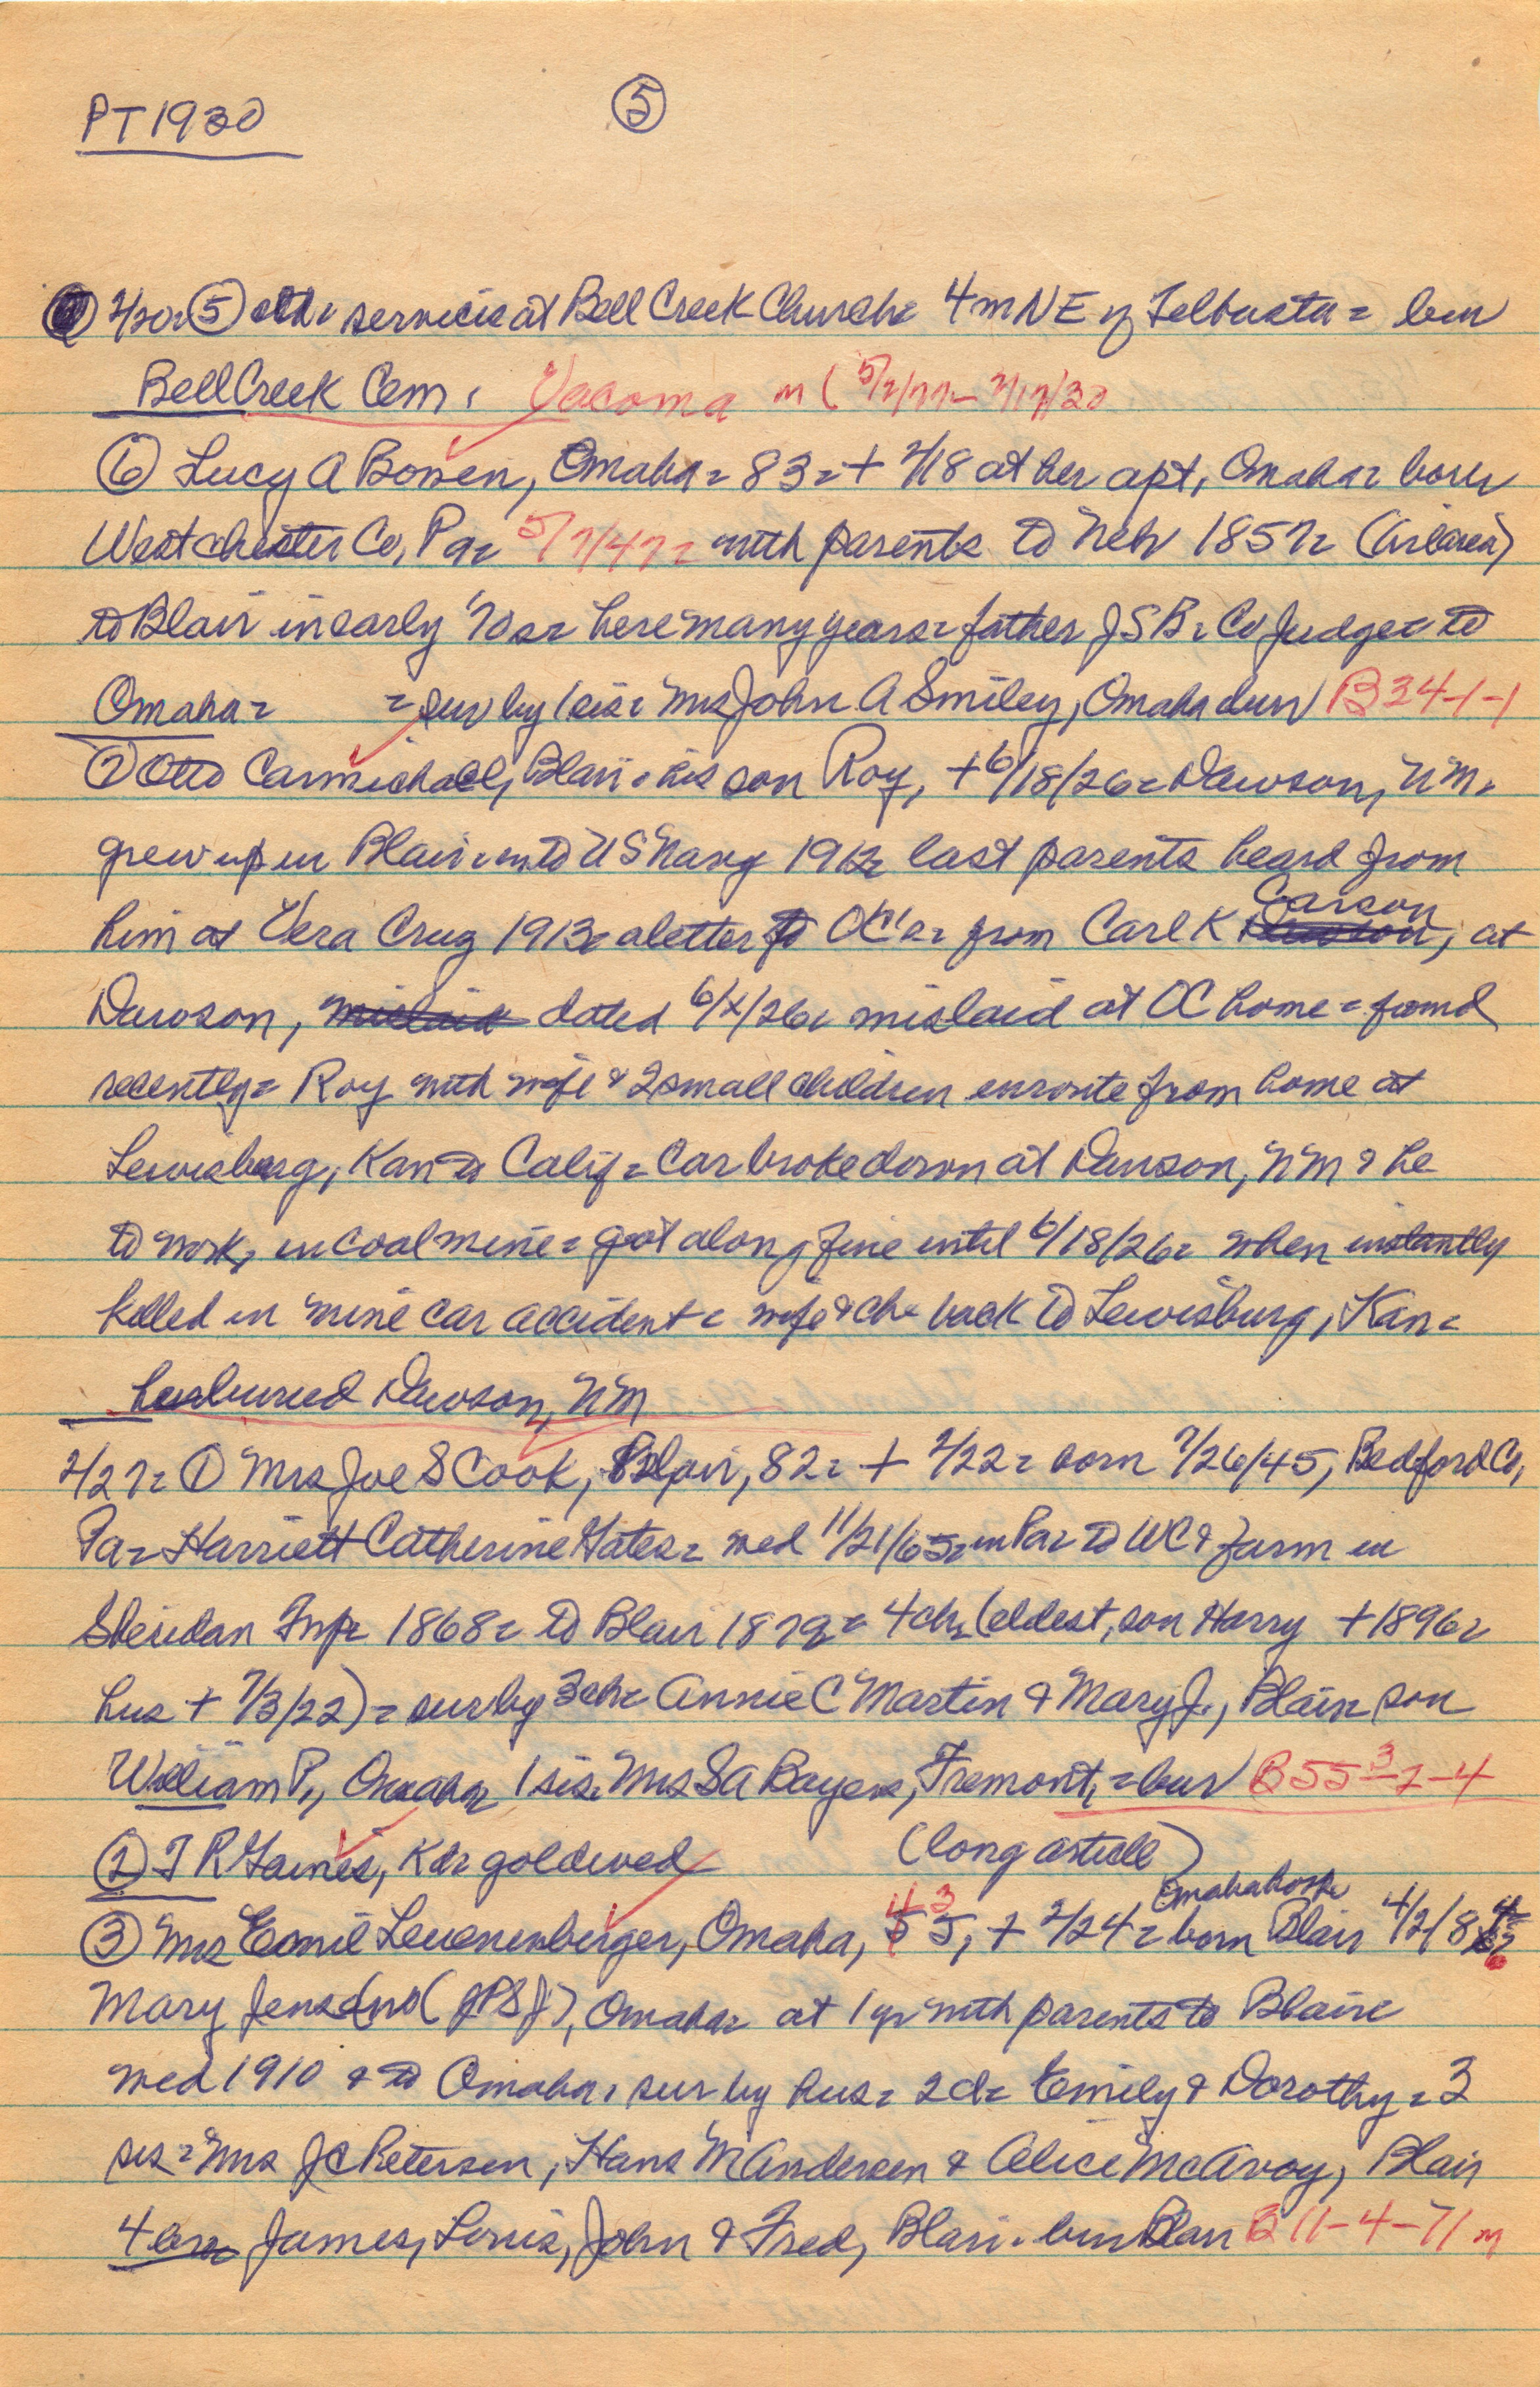 PT1930
⑤
2/20= ⑤ services at Bell Creek Church= 4 m NE of Telbasta= bur
Bell Creek Cem. Vacoma m (5/2/77- 2/17/30
⑥ Lucy A Bowen, Omaha= 83= + 2/18 at her apt, Omaha= born
Westchester Co, Pa= 5/7/47= with parents to Neb 1857=
to Blair in early '70s= here many years= father JSB= Co Judge= to
Omaha= = sur by 1 sis= Mrs John A Smiley, Omaha bur B34-1-1
⑦ Otto Carmichael, Blair= his son Roy, + 6/18/26= Dawson, NM=
grew up in Blair= into US Navy 1912= last parents heard from
him at Vera Cruz 1913= a letter to OC's= from Carl K Carson, at
Dawson, mislaid dated 6/x/26= mislaid at OC home= found
recently= Roy with wife & 2 small children enroute from home at
Lewisburg, Kan to Calif= Car broke down at Dawson, NM & he
to work, in coal mine= got along fine until 6/18/26= when instantly
killed in mine car accident= wife & ch= back to Lewisburg, Kan=
buried Dawson, NM
2/27= ① Mrs Joe S Cook, Blair, 82= + 2/22= born 7/26/45, Bedford Co,
Pa= Harriett Catherine Yates= wed 11/21/65= in Pa= to WC & farm in
Sheridan Twp= 1868= to Blair 1879= 4 ch= (eldest, son Harry + 1896=
hus + 7/3/22)= sur by 3 ch= Annie C Martin & Mary J., Blair= son
William P., Omaha= 1 sis. Mrs SA Bayers, Fremont,= bur B55-3-4
② T R Gaines, K= gold wed (long article)
③ Mrs Emil Leuenenberger, Omaha, 43, + 2/24= Omaha hosp= born Blair 4/2/8
Mary Jensen (JPSJ), Omaha= at 1 yr with parents to Blair=
wed 1910 & to Omaha, sur by hus= 2 d= Emily & Dorothy= 3
sis= Mrs JC Petersen, Hans M Andersen & Alice McAvoy, Blair
4 bro= James, Louis, John & Fred, Blair= bur Blair B 11-4-71 m